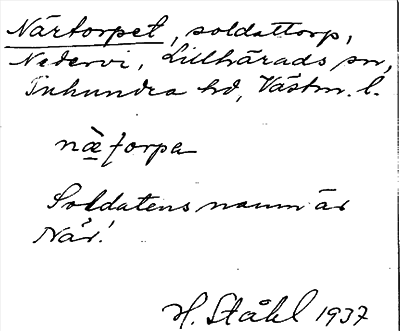 Närtorpet, soldattorp,
Nedervi, Lillhärads sn,
Tuhundra hd, Västm. l.
næ̀ torpa
Soldatens namn är
När!
H. Ståhl 1937